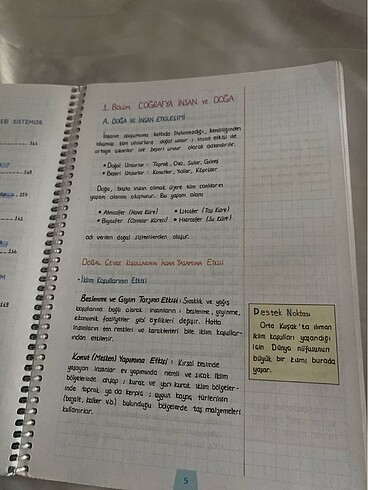 1. Bölüm COĞRAFYA İNSAN ve DOĞA
A. DOĞA VE İNSAN ETKİLEŞİMİ
İnsanın oluşumuna katkıda bulunmadığı, kendiliğinden
oluşmuş tüm unsurlara doğal unsur; insan etkisi ile
ortaya çıkanlar ise beşeri unsur olarak adlandırılır.
• Doğal Unsurlar: Toprak, Ova, Sular, Güneş
• Beşeri Unsurlar: Konutlar, Yollar, Köprüler
Doğa, başta insan olmak üzere tüm canlıların
yaşam alanını oluşturur. Bu yaşam alanı
• Atmosfer (Hava Küre) • Litosfer (Taş Küre)
• Biyosfer (Canlılar Küresi) • Hidrosfer (Su Küre)
adı verilen doğal sistemlerden oluşur.
DOĞAL ÇEVRE KOŞULLARININ İNSAN YAŞAMINA ETKİSİ
• İklim Koşullarının Etkisi
Beslenme ve Giyim Tarzına Etkisi: Sıcaklık ve yağış
koşullarına bağlı olarak insanların; beslenme, giyinme,
ekonomik faaliyetler gibi özellikleri değişir. Hatta
insanların ten renkleri ve karakterleri bile iklim koşulla-
rından etkilenir.
Konut (Mesken) Yapımına Etkisi: Kırsal kesimde
yaşayan insanlar ev yapımında nemli ve sıcak iklim
bölgelerinde ahşap; kurak ve yarı kurak iklim bölgeler-
inde toprak ya da kerpiç; uygun kayaç türlerinin
(bazalt, kalker v.b.) bulunduğu bölgelerde taş malzemeleri
kullanırlar.
Destek Noktası
Orta Kuşak'ta ılıman
iklim koşulları yaşandığı
için Dünya nüfusunun
büyük bir kısmı burada
yaşar.
5